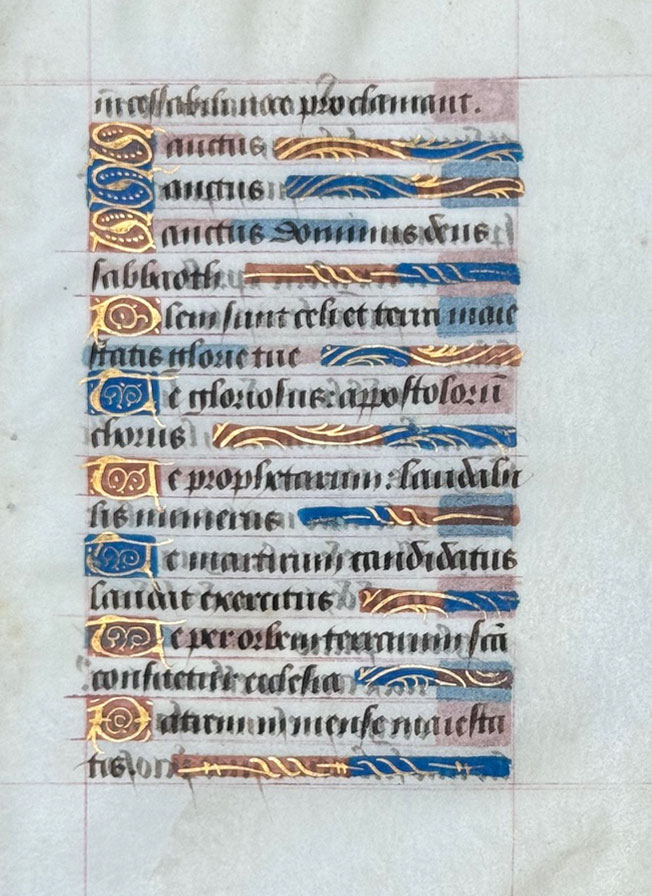 incessabili uoce proclamant.
Sanctus
Sanctus
Sanctus dominus deus
sabbaoth.
Pleni sunt celi et terra maie
statis glorie tue
Te gloriosus: appostolorū
chorus
Te prophetarum: laudabi
lis numerus
Te martirum candidatus
laudat exercitus
Te per orbem terrarum scā
confitetur ecclesia
Patrem immense maiesta
tis.